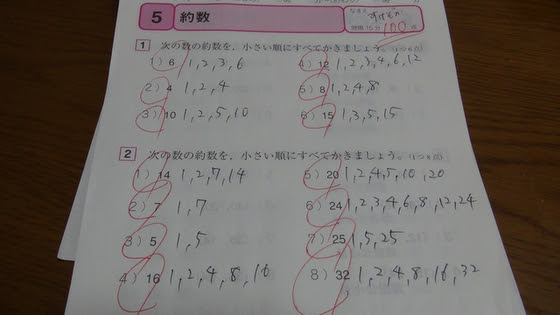 5 約数
なまえ
時間 15分 100点
1 次の数の約数を,小さい順にすべてかきましょう。(1つ6点)
1) 6 1,2,3,6
4) 12 1,2,3,4,6,12
2) 4 1,2,4
5) 8 1,2,4,8
3) 10 1,2,5,10
6) 15 1,3,5,15
2 次の数の約数を,小さい順にすべてかきましょう。(1つ8点)
1) 14 1,2,7,14
5) 20 1,2,4,5,10,20
2) 7 1,7
6) 24 1,2,3,4,6,8,12,24
3) 5 1,5
7) 25 1,5,25
4) 16 1,2,4,8,16
8) 32 1,2,4,8,16,32